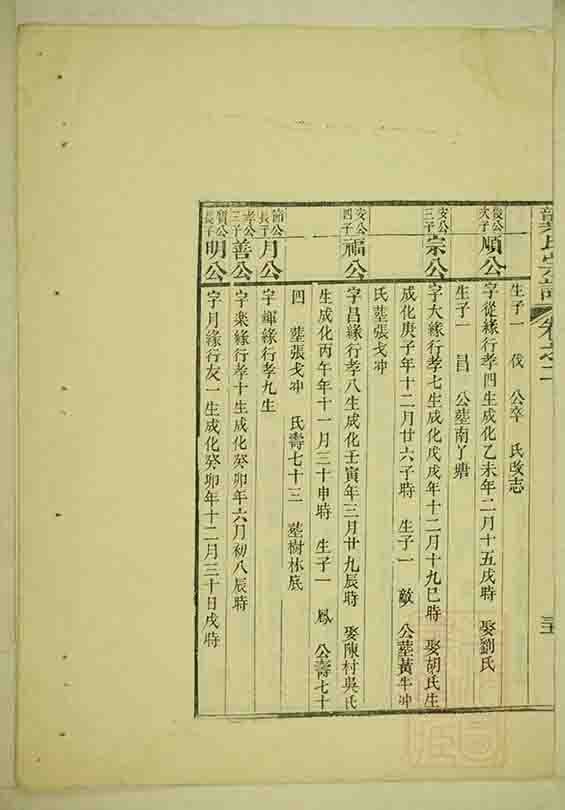 卷之二
生子一 伐 公卒 氏改志
俊公
次子
順公
字從緣行孝四生成化乙未年二月十五戌時 娶劉氏
生子一 昌 公塟南丫塘
安公
三子
宗公
字大緣行孝七生成化戊戌年十二月十九巳時 娶胡氏生
成化庚子年十二月廿六子時 生子一 敵 公塟黃牛冲
氏塟張戈冲
安公
四子
福公
字昌緣行孝八生成化壬寅年三月廿九辰時 娶陳村吳氏
生成化丙午年十一月三十申時 生子一 鳳 公壽七十
四 塟張戈冲 氏壽七十三 塟樹林底
長子
月公
字輝緣行孝九生
孝公
三子
善公
字楽緣行孝十生成化癸卯年六月初八辰時
寶公
長子
明公
字月緣行友一生成化癸卯年十二月三十日戌時